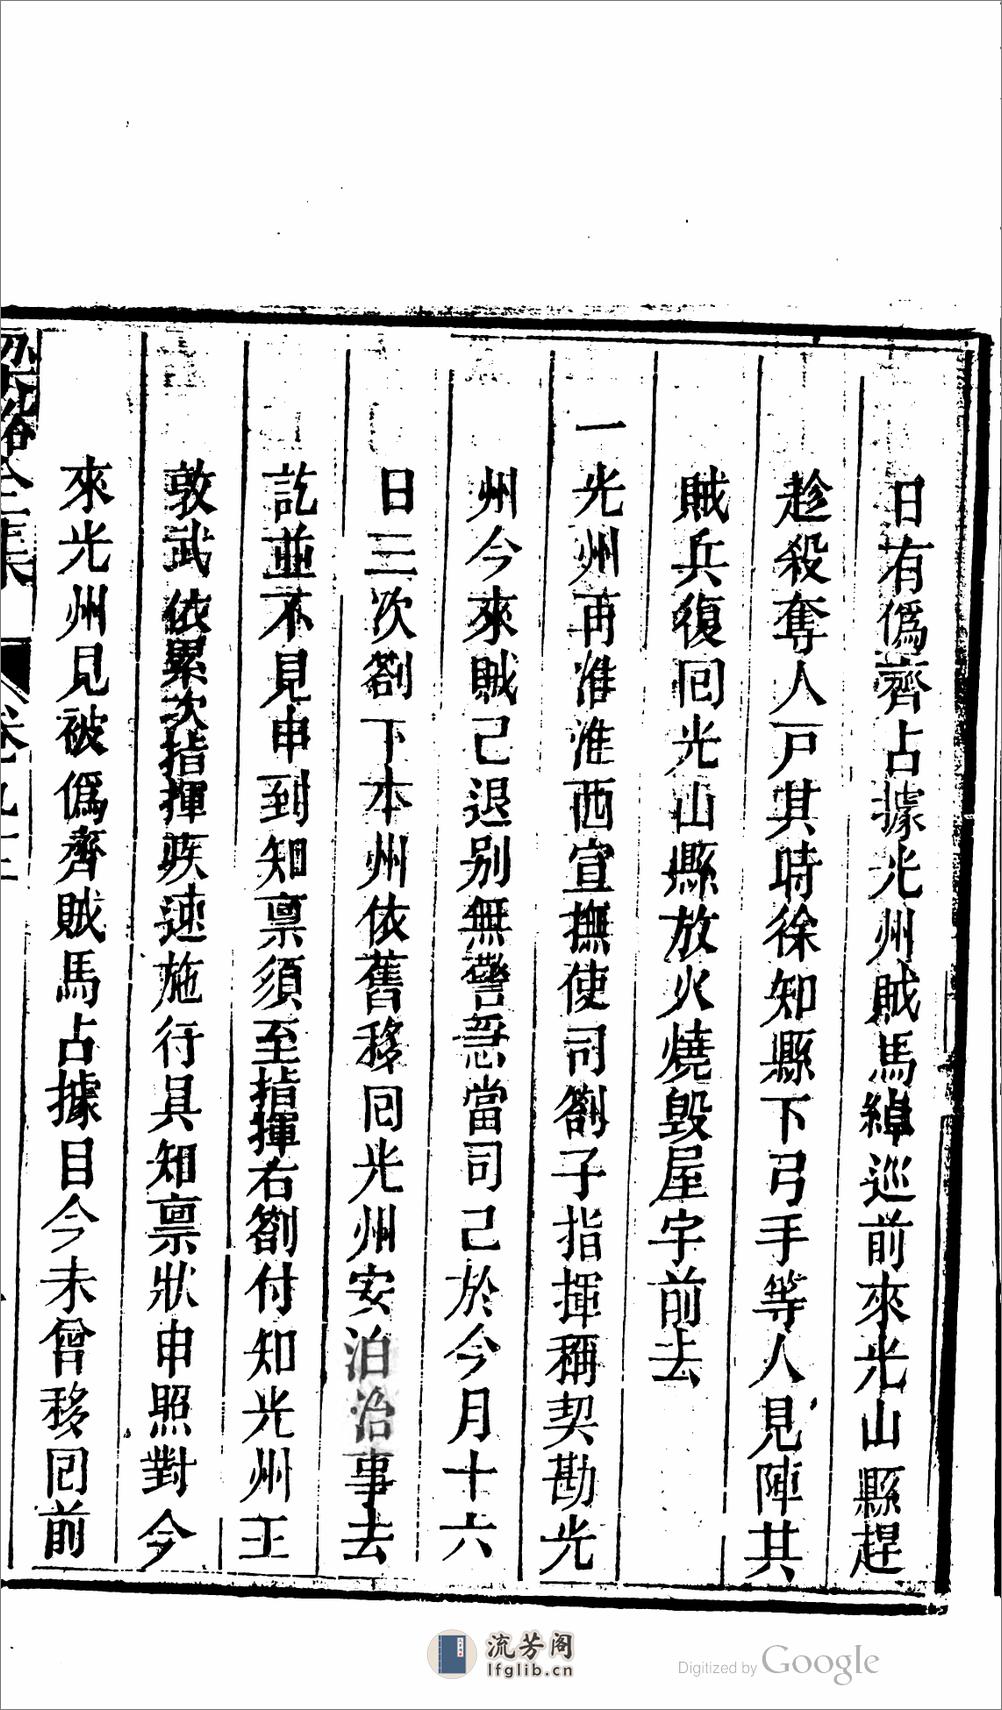 日有僞齊占據光州賊馬綽巡前來光山縣趕
趁殺奪人戸其時徐知縣下弓手等人見陣其
賊兵復囘光山縣放火燒毁屋宇前去
一光州再准淮西宣撫使司劄子指揮稱契勘光
州今來賊己退别無警急當司己於今月十六
日三次劄下本州依舊移囘光州安泊治事去
訖並不見申到知禀須至指揮右劄付知光州王
敦武依累次指揮疾速施行具知禀狀申照對今
來光州見被僞齊賊馬占據目今未曾移囘前
梁谿全集 卷九十三
流芳阁
lfglib.cn
Digitized by Google